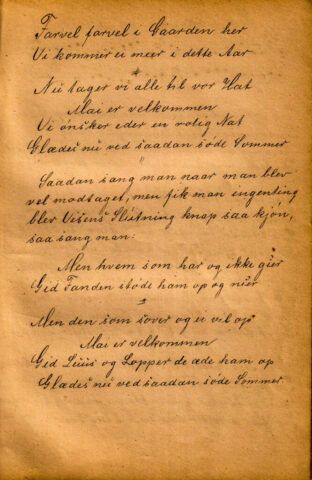 Farvel farvel i Gaarden her
Vi kommer ei meer i dette Aar
Nu tager vi alle til vor Hat
Mai er velkommen
Vi önsker eder en rolig Nat
Glædes nu ved saadan söde Sommer
"
Saadan sang man naar man blev
vel modtaget, men fik man ingenting
blev Visens Slutning knap saa kjön,
saa sang man:
Men hvem som har og ikke gier
Gid Fanden stöde ham op og nier
Men den som sover og ei vil op
Mai er velkommen
Gid Luus og Lopper de æde ham op
Glædes nu ved saadan söde Sommer.